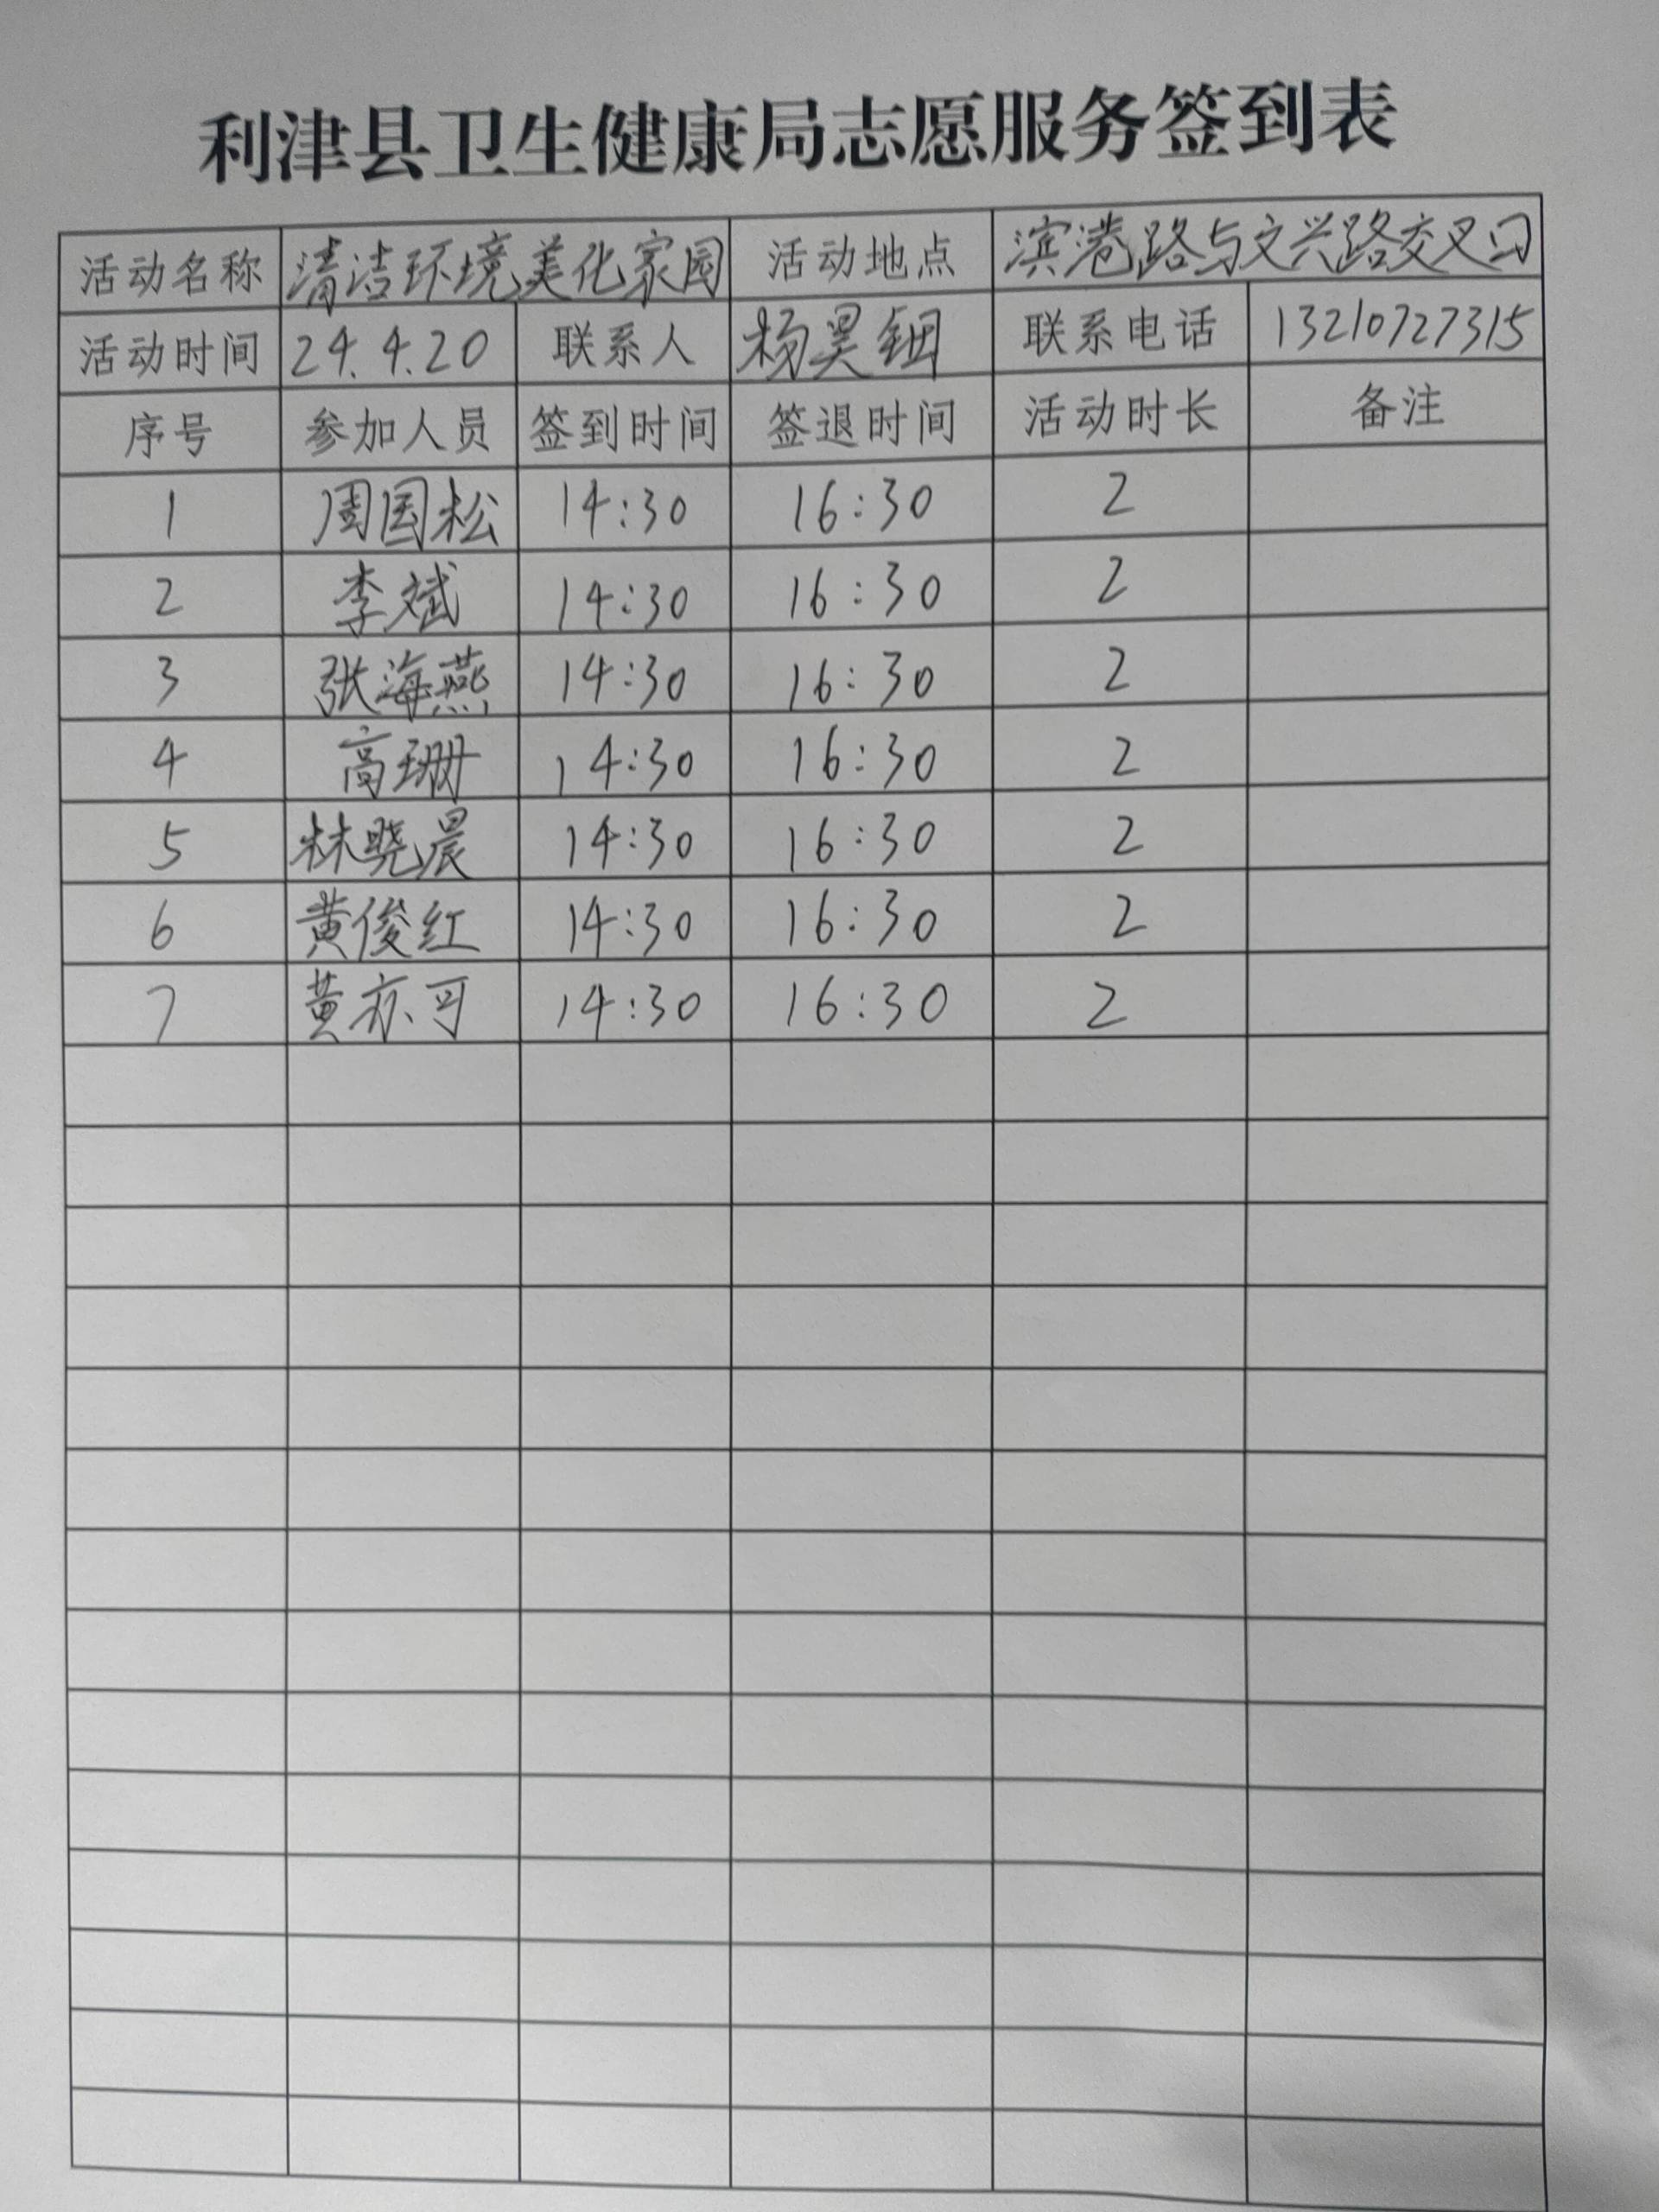 利津县卫生健康局志愿服务签到表
活动名称 清洁环境美化家园 活动地点 滨港路与文兴路交叉口
活动时间 24.4.20 联系人 杨昊钿 联系电话 13210727315
序号 参加人员 签到时间 签退时间 活动时长 备注
1 周国松 14:30 16:30 2
2 李斌 14:30 16:30 2
3 张海燕 14:30 16:30 2
4 高珊 14:30 16:30 2
5 林晓晨 14:30 16:30 2
6 黄俊红 14:30 16:30 2
7 黄亦可 14:30 16:30 2